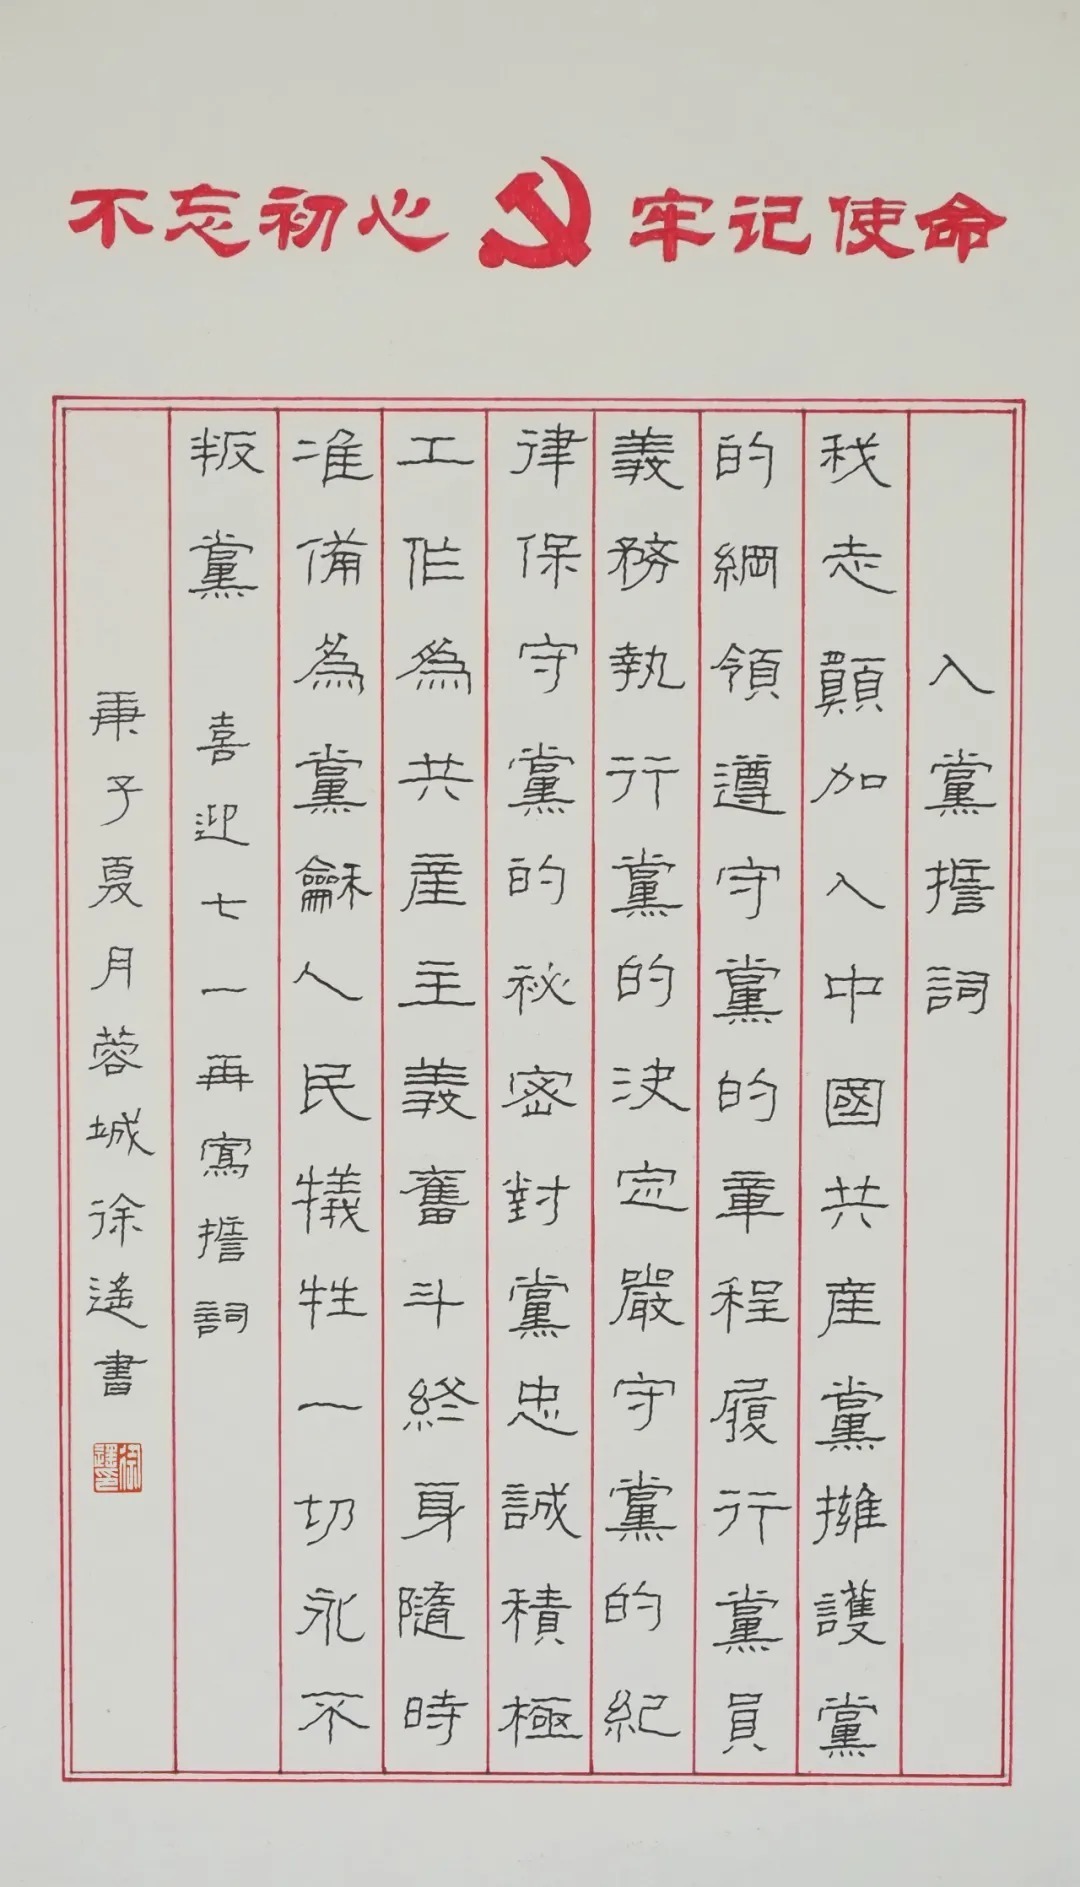 不忘初心 牢记使命
入黨誓詞
我志願加入中國共産黨擁護黨
的綱領遵守黨的章程履行黨員
義務執行黨的決定嚴守黨的紀
律保守黨的祕密對黨忠誠積極
工作為共産主義奮斗終身隨時
准備為黨龢人民犧牲一切永不
叛黨 喜迎七一再寫誓詞
庚子夏月蓉城徐遙書